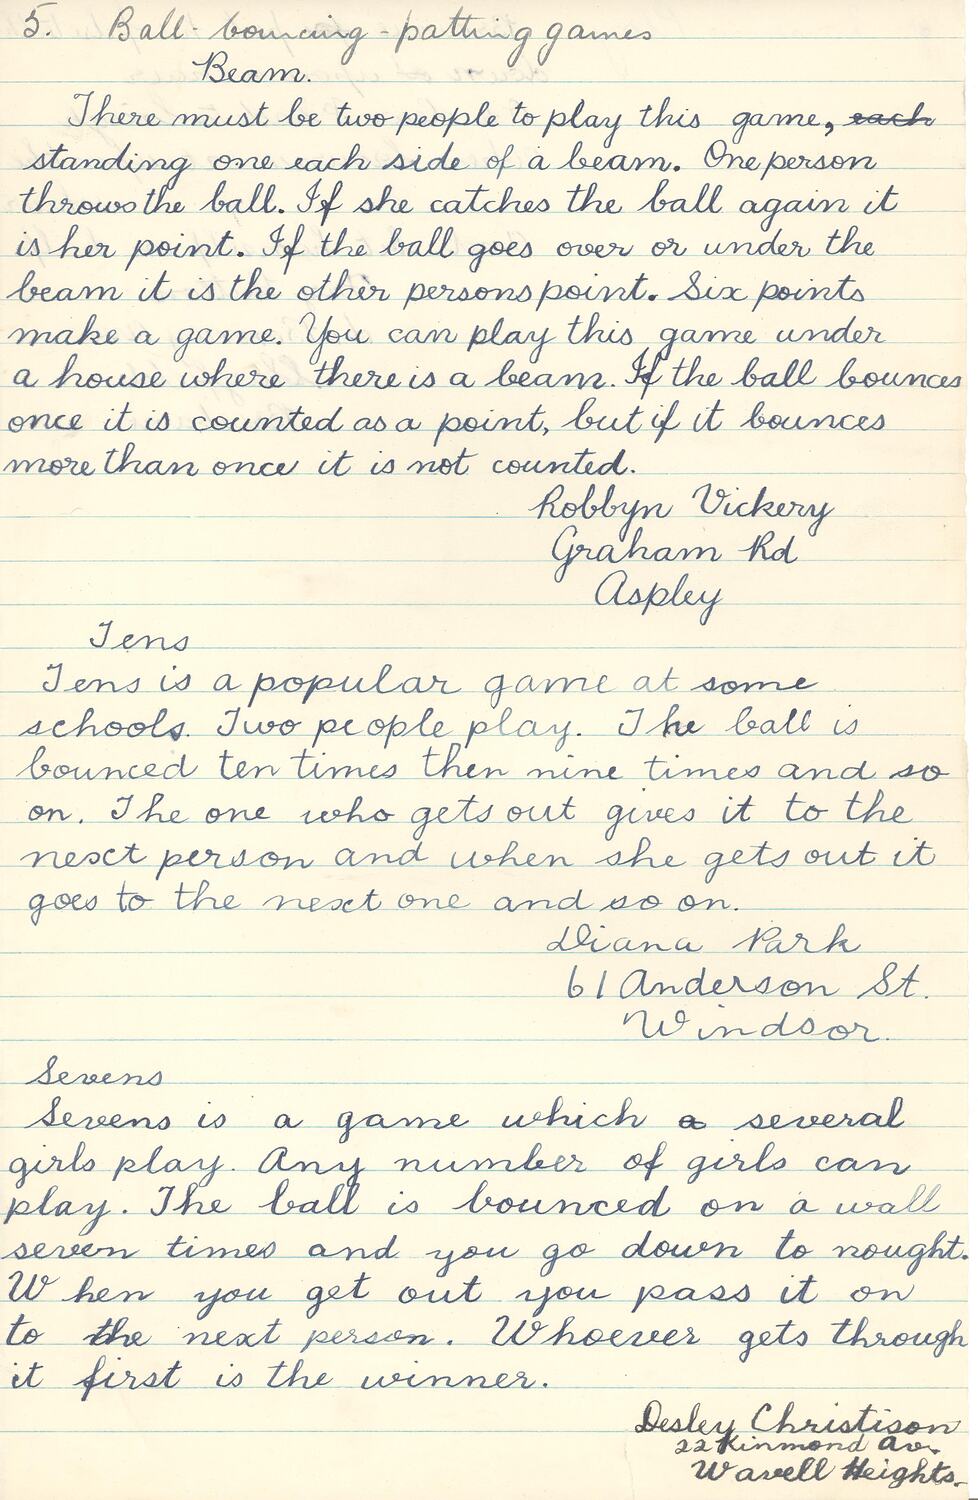 5. Ball-bouncing-patting games
Beam.
There must be two people to play this game, each
standing one each side of a beam. One person
throws the ball. If she catches the ball again it
is her point. If the ball goes over or under the
beam it is the other persons point. Six points
make a game. You can play this game under
a house where there is a beam. If the ball bounces
once it is counted as a point, but if it bounces
more than once it is not counted.
Robbyn Vickery
Graham Rd
Aspley
Tens
Tens is a popular game at some
schools. Two people play. The ball is
bounced ten times then nine times and so
on. The one who gets out gives it to the
next person and when she gets out it
goes to the next one and so on.
Diana Park
61 Anderson St.
Windsor.
Sevens
Sevens is a game which a several
girls play. Any number of girls can
play. The ball is bounced on a wall
seven times and you go down to nought.
When you get out you pass it on
to the next person. Whoever gets through
it first is the winner.
Desley Christison
22 Kinmond Av.
Wavell Heights.